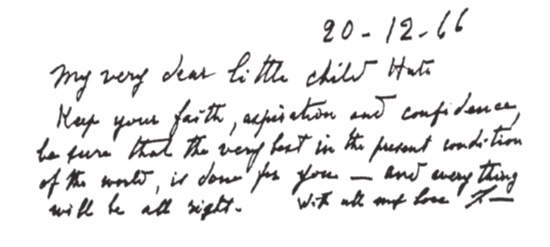 20-12-66
My very dear little child Huta
Keep your faith, aspiration and confidence,
be sure that the very best in the present condition
of the world, is done for you — and everything
will be all right. With all my love